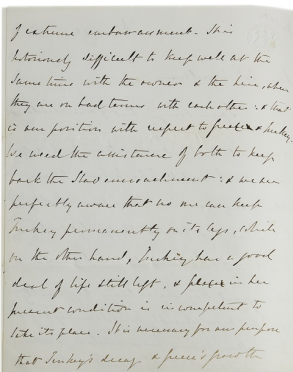 of extreme embarrassment. It is
notoriously difficult to keep well at the
same time with the owner & the heir, when
they are on bad terms with each other: & that
is our position with respect to Greece & Turkey.
We need the assistance of both to keep
back the Slav encroachment: & we are
perfectly aware that no one can keep
Turkey permanently on its legs, while
on the other hand, Turkey has a good
deal of life still left, & Greece in her
present condition is incompetent to
take its place. It is necessary for our purpose
that Turkey's decay & Greece's growth